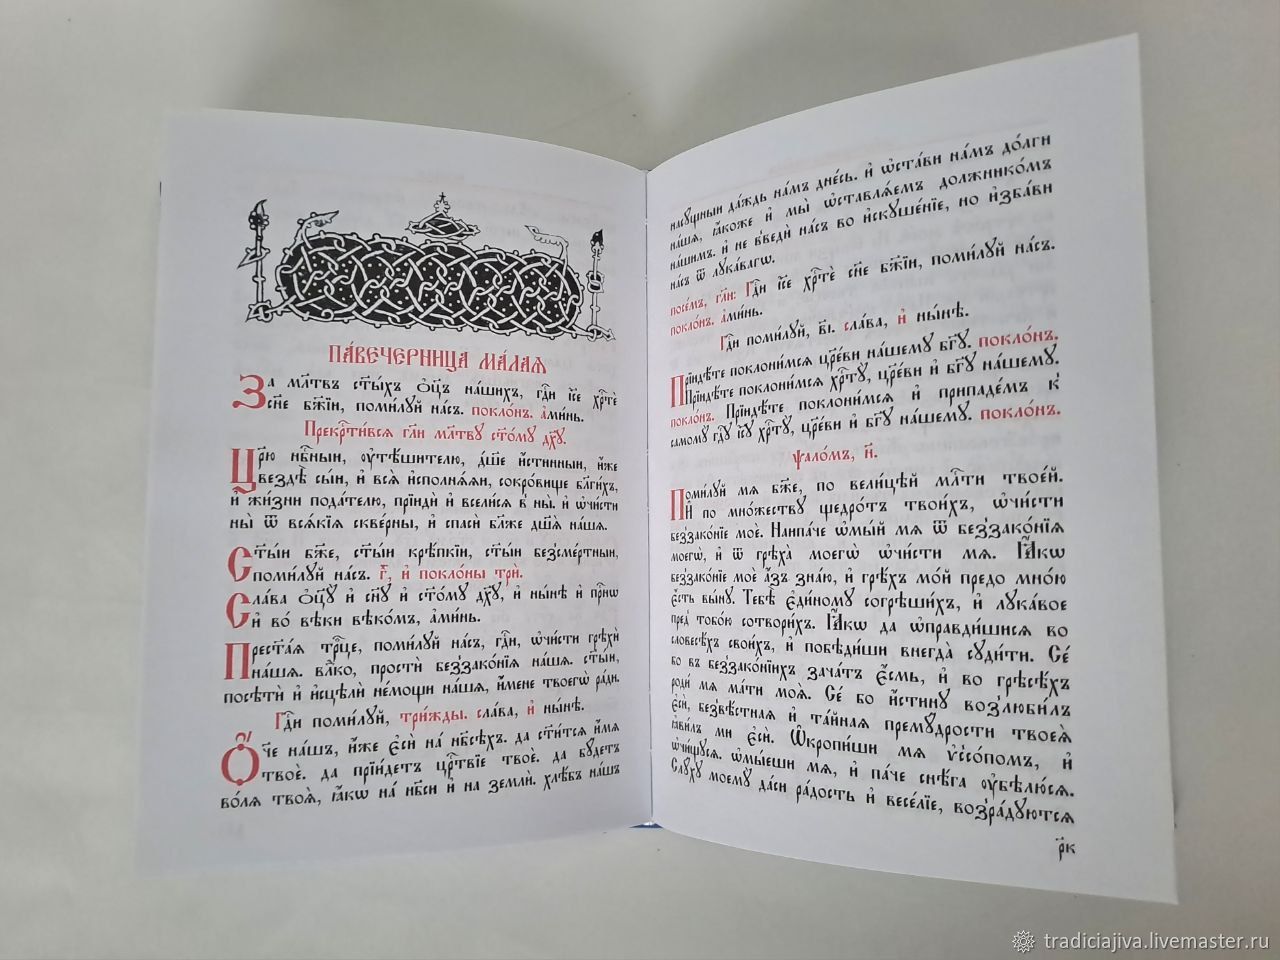 ПА́ВЕЧЕРНИЦА МА́ЛАѦ
За мл҃твъ ст҃ы́хъ ѻ҆ц҃ъ на́шихъ, гдⷭ҇и і҆с҃е хрⷭ҇тѐ
сн҃е бж҃їи, поми́лꙋй на́съ. покло́нъ. а҆ми́нь.
Прекрⷭ҇ти́всѧ гл҃и мл҃твꙋ ст҃о́мꙋ дх҃ꙋ.
Цр҃ю нбⷭ҇ныи, ᲂу҆тѣ́шителю, дш҃е и҆́стинныи, и҆́же
везде́ сы́и, и҆ всѧ̀ и҆сполнѧ́ѧи, сокро́вище бл҃ги́хъ,
и҆ жи́зни пода́телю, прїидѝ и҆ всели́сѧ в ны̀. и҆ ѡ҆чи́сти
ны̀ ѿ всѧ́кїѧ скве́рны, и҆ спасѝ бл҃же дш҃ѧ на́шѧ.
Ст҃ы́и бж҃е, ст҃ы́и крѣ́пкїи, ст҃ы́и безсме́ртныи,
поми́лꙋй на́съ. г҃, и҆ покло́ны трѝ.
Сла́ва ѻ҆ц҃ꙋ̀ и҆ сн҃ꙋ и҆ ст҃о́мꙋ дх҃ꙋ, и҆ ны́нѣ и҆ при́снѡ
и҆ во́ вѣки вѣко́мъ, а҆ми́нь.
Прест҃а́ѧ трⷪ҇це, поми́лꙋй на́съ, гдⷭ҇и, ѡ҆чи́сти грѣхѝ
на́шѧ. влⷣко, простѝ беззако́нїѧ на́шѧ. ст҃ы́и,
посѣтѝ и҆ и҆сцѣлѝ не́мощи на́шѧ, и҆́мене твоегѡ̀ ра́ди.
Гдⷭ҇и поми́лꙋй, три́жды. сла́ва, и҆ ны́нѣ.
Ѻ҆́че на́шъ, и҆́же є҆сѝ на́ нб҃сѣхъ. да ст҃и́тсѧ и҆́мѧ
твоѐ. да прїи́детъ црⷭ҇твїе твоѐ. да бꙋ́детъ
во́лѧ твоѧ̀, ꙗ҆́кѡ на́ нб҃си и҆ на землѝ. хлѣ́бъ на́шъ
насꙋ́щныи да́ждь на́мъ дне́сь. и҆ ѡ҆ста́ви на́мъ до́лги
на́шѧ, ꙗ҆́коже и҆ мы̀ ѡ҆ставлѧ́емъ должнико́мъ
на́шимъ. и҆ не введѝ на́съ во и҆скꙋше́нїе, но и҆зба́ви
на́съ ѿ лꙋка́вагѡ.
посе́мъ, гл҃и: Гдⷭ҇и і҆с҃е хрⷭ҇тѐ сн҃е бж҃їи, поми́лꙋй на́съ.
покло́нъ. а҆ми́нь.
Гдⷭ҇и поми́лꙋй, в҃і. сла́ва, и҆ ны́нѣ.
Прїиди́те поклони́мсѧ цр҃е́ви на́шемꙋ бг҃ꙋ. покло́нъ.
Прїиди́те поклони́мсѧ хрⷭ҇тꙋ̀, цр҃е́ви и҆ бг҃ꙋ на́шемꙋ.
покло́нъ. Прїиди́те поклони́мсѧ и҆ припаде́мъ к
самомꙋ̀ гдⷭ҇ꙋ і҆с҃ꙋ хрⷭ҇тꙋ̀, цр҃е́ви и҆ бг҃ꙋ на́шемꙋ. покло́нъ.
ѱало́мъ, н҃.
Поми́лꙋй мѧ бж҃е, по вели́цѣй млⷭ҇ти твое́й.
и҆ по мно́жествꙋ щедро́тъ твои́хъ, ѡ҆чи́сти
беззако́нїе моѐ. Наипа́че ѡ҆мы́й мѧ ѿ беззако́нїѧ
моегѡ̀, и҆ ѿ грѣха̀ моегѡ̀ ѡ҆чи́сти мѧ. Ꙗ҆́кѡ
беззако́нїе моѐ а҆́зъ зна́ю, и҆ грѣ́хъ мо́й предо мно́ю
є҆́сть вы́нꙋ. Тебѣ̀ є҆ди́номꙋ согрѣши́хъ, и҆ лꙋка́вое
пред̾ тобо́ю сотвори́хъ. Ꙗ҆́кѡ да ѡ҆правди́шисѧ во
словесѣ́хъ свои́хъ, и҆ побѣди́ши внегда̀ сꙋди́ти. Се́
бо въ беззако́нїихъ зача́тъ є҆́смь, и҆ во грѣсѣ́хъ
роди́ мѧ ма́ти моѧ̀. Се́ бо и҆́стинꙋ возлюби́лъ
є҆сѝ, безвѣ́стнаѧ и҆ та́йнаѧ премꙋ́дрости твоеѧ̀
ꙗ҆ви́лъ ми є҆сѝ. Ѡ҆кропи́ши мѧ ѵ҆ссо́помъ, и҆
ѡ҆чи́щꙋсѧ. ѡ҆мы́еши мѧ, и҆ па́че снѣ́га ᲂу҆бѣлю́сѧ.
Слꙋ́хꙋ моемꙋ̀ да́си ра́дость и҆ весе́лїе, возра́дꙋютсѧ
р҃к
tradiciajiva.livemaster.ru